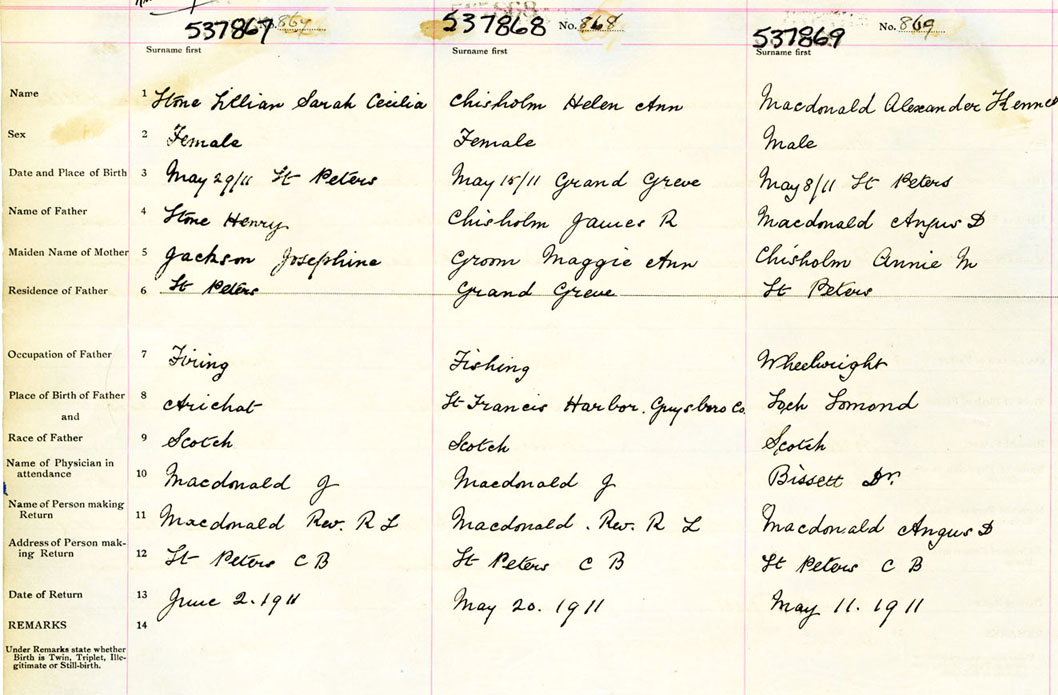 537867 867 537868 No. 868 537869 No. 869
Surname first Surname first Surname first
Name 1 Stone Lillian Sarah Cecilia Chisholm Helen Ann Macdonald Alexander
Sex 2 Female Female Male
Date and Place of Birth 3 May 29/11 St Peters May 15/11 Grand Greve May 8/11 St Peters
Name of Father 4 Stone Henry Chisholm James R Macdonald Angus D
Maiden Name of Mother 5 Jackson Josephine Groom Maggie Ann Chisholm Annie M
Residence of Father 6 St Peters Grand Greve St Peters
Occupation of Father 7 Firing Fishing Wheelwright
Place of Birth of Father 8 Arichat St Francis Harbor. Guysboro Co. Loch Lomond
and
Race of Father 9 Scotch Scotch Scotch
Name of Physician in
attendance 10 Macdonald J Macdonald J Bissett Dr.
Name of Person making
Return 11 Macdonald Rev. R L Macdonald. Rev. R L Macdonald Angus D
Address of Person mak-
ing Return 12 St Peters C B St Peters C B St Peters C B
Date of Return 13 June 2. 1911 May 20. 1911 May 11. 1911
REMARKS 14
Under Remarks state whether
Birth is Twin, Triplet, Ille-
gitimate or Still-birth.